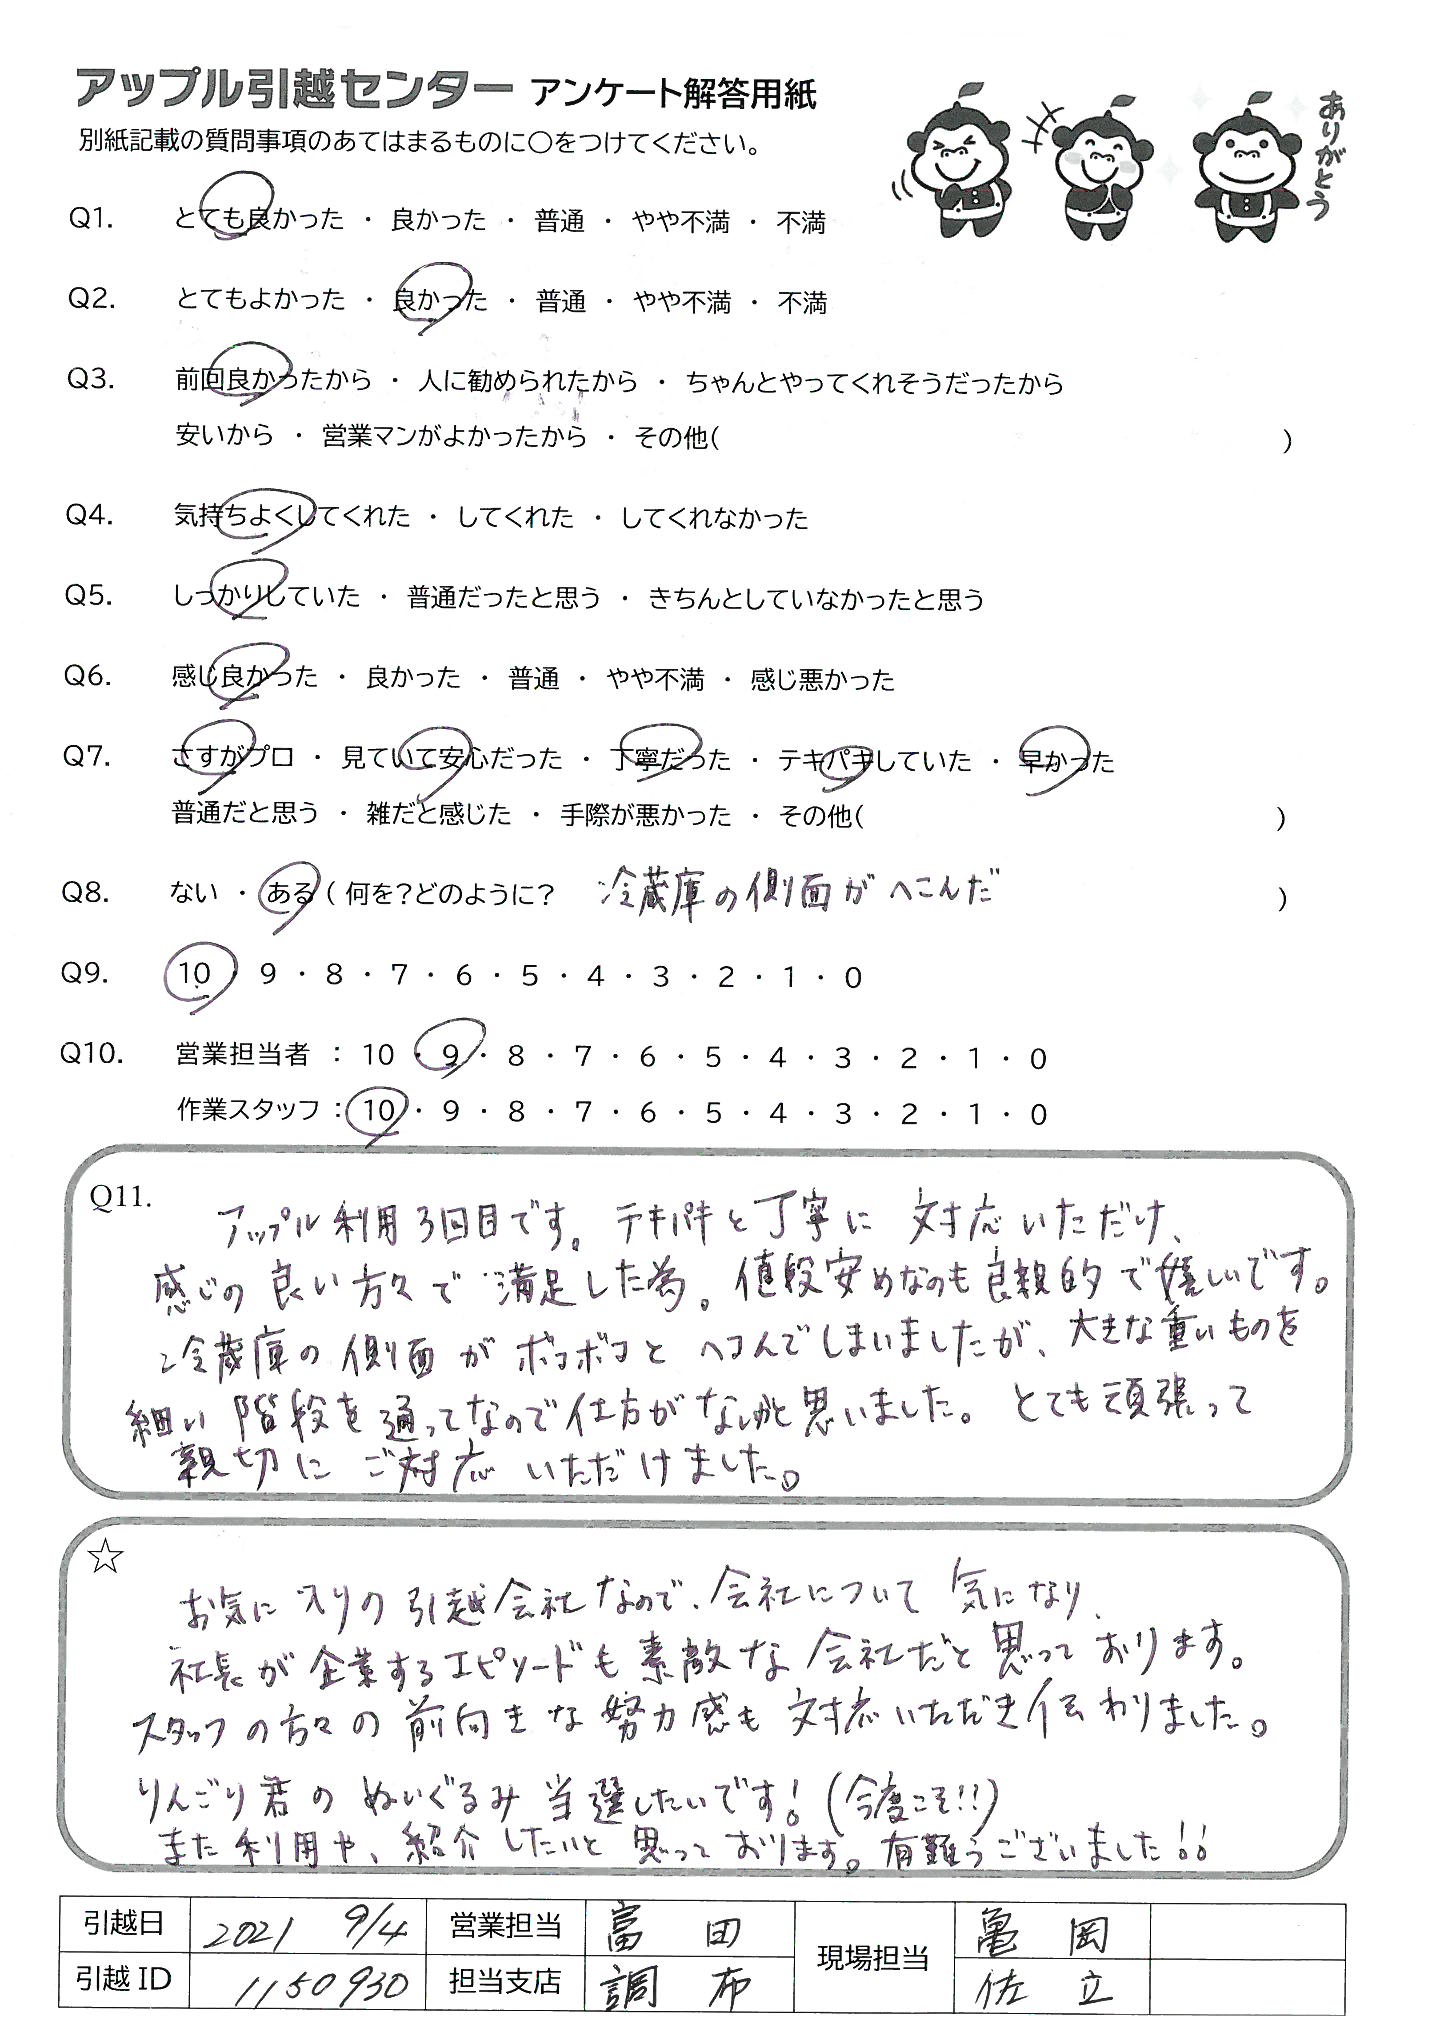 アップル引越センター アンケート解答用紙
別紙記載の質問事項のあてはまるものに○をつけてください。
ありがとう
Q1. とても良かった ・ 良かった ・ 普通 ・ やや不満 ・ 不満
Q2. とてもよかった ・ 良かった ・ 普通 ・ やや不満 ・ 不満
Q3. 前回良かったから ・ 人に勧められたから ・ ちゃんとやってくれそうだったから
安いから ・ 営業マンがよかったから ・ その他( )
Q4. 気持ちよくしてくれた ・ してくれた ・ してくれなかった
Q5. しっかりしていた ・ 普通だったと思う ・ きちんとしていなかったと思う
Q6. 感じ良かった ・ 良かった ・ 普通 ・ やや不満 ・ 感じ悪かった
Q7. さすがプロ ・ 見ていて安心だった ・ 丁寧だった ・ テキパキしていた ・ 早かった
普通だと思う ・ 雑だと感じた ・ 手際が悪かった ・ その他( )
Q8. ない ・ ある ( 何を?どのように? 冷蔵庫の側面がへこんだ )
Q9. 10 ・ 9 ・ 8 ・ 7 ・ 6 ・ 5 ・ 4 ・ 3 ・ 2 ・ 1 ・ 0
Q10. 営業担当者 : 10 ・ 9 ・ 8 ・ 7 ・ 6 ・ 5 ・ 4 ・ 3 ・ 2 ・ 1 ・ 0
作業スタッフ : 10 ・ 9 ・ 8 ・ 7 ・ 6 ・ 5 ・ 4 ・ 3 ・ 2 ・ 1 ・ 0
Q11. アップル利用3回目です。テキパキと丁寧に 対応いただけ、
感じの良い方々で満足した為。値段安めなのも良親的で嬉しいです。
冷蔵庫の側面がボコボコとヘコんでしまいましたが、大きな重いものを
細い階段を通ってなので仕方がないかと思いました。とても頑張って
親切に ご対応いただけました。
☆
お気に入りの引越会社なので、会社について気になり、
社長が企業するエピソードも素敵な会社だと思っております。
スタッフの方々の前向きな努力感も対応いただき伝わりました。
りんごり君のぬいぐるみ当選したいです!(今度こそ!!)
また利用や、紹介したいと思っております。有難うございました!!
引越日 2021 9/4 営業担当 富田 現場担当 亀岡
引越ID 1150930 担当支店 調布 佐立